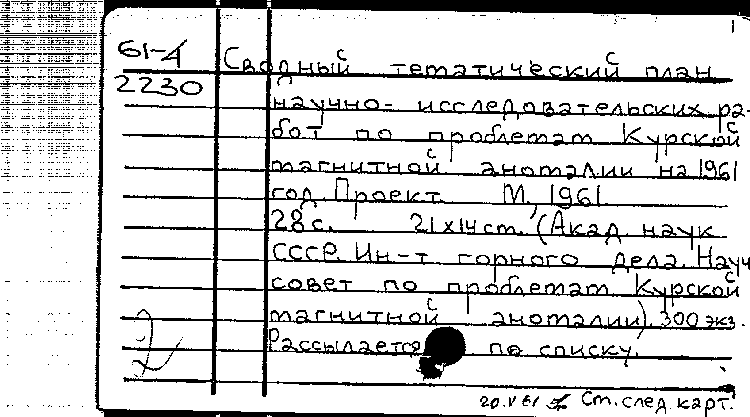 1
61-4
2230
Сводный тематический план
научно-исследовательских ра-
бот по проблемам Курской
магнитной аномалии на 1961
год. Проект. М, 1961
28 с. 21х14 см. (Акад. наук
СССР. Ин-т горного дела. Науч
совет по проблемам Курской
магнитной аномалии). 300 экз.
Рассылается по списку.
2
20.V 61 См. след карт.